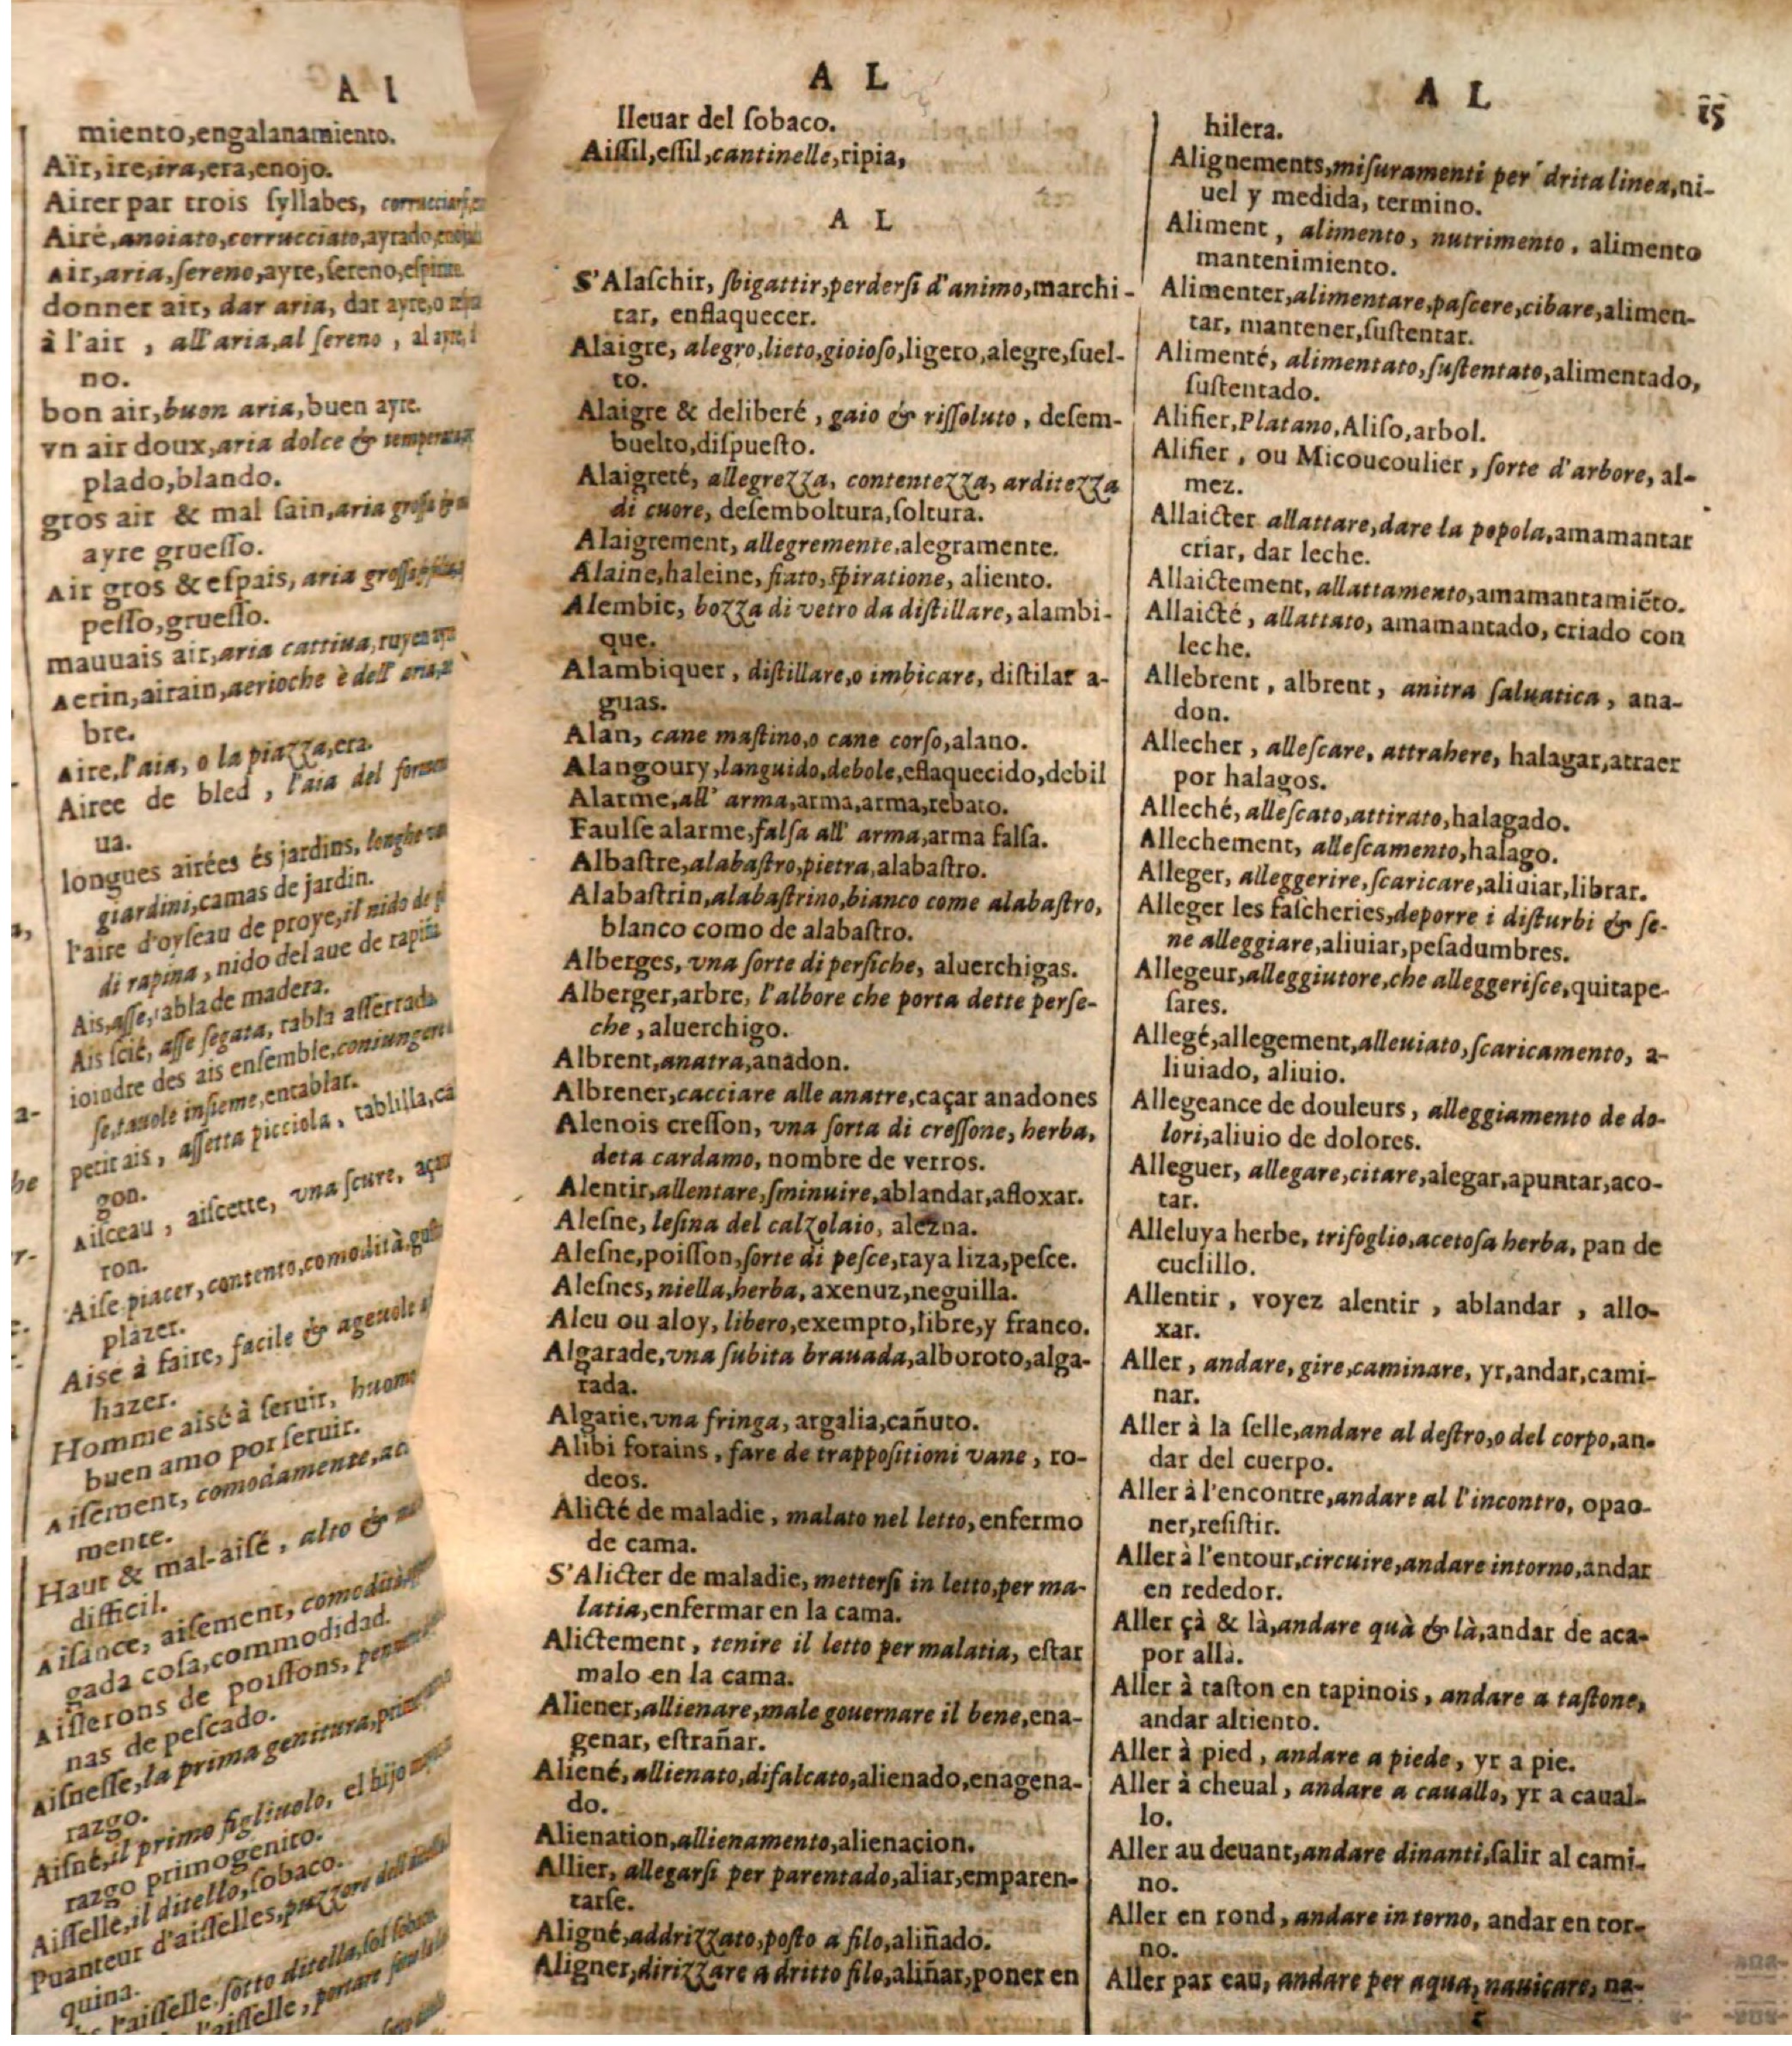 A I
miento,engalanamiento.
Aïr,ire,ira,era,enojo.
Airer par trois ſyllabes,
Airé,anoiato,corrucciato,ayrado,
Air,aria,ſereno,ayre,ſereno,
donner air, dar aria, dar ayre,o
à l'air , all'aria,al ſereno , al ayre,
no.
bon air,buon aria,buen ayre.
vn air doux,aria dolce &
plado,blando.
gros air & mal ſain,aria
ayre grueſſo.
Air gros & eſpais, aria
peſſo,grueſſo.
mauuais air,aria cattiua,
Aerin,airain,aerioche è dell'
bre.
Aire,l'aia, o la piazza,era.
Airee de bled , l'aia del
ua.
longues airées és jardins,
giardini,camas de jardin.
l'aire d'oyſeau de proye,il nido de
di rapina , nido del aue de rapiña
Ais,aſſe,tabla de madera.
Ais ſcié, aſſe ſegata, tabla aſſerrada
ioindre des ais enſemble,
ſe,tauole inſieme,entablar.
petit ais , aſſetta picciola , tablilla,
gon.
Aiſceau , aiſcette, vna ſcure,
ron.
Aiſe piacer,contento,comodità,
plazer.
Aise à faire, facile & ageuole
hazer.
Homme aisé à ſeruir,
buen amo por ſeruir.
Aiſement, comodamente,
mente.
Haut & mal-aiſé , alto &
difficil.
Aiſance, aiſement,
gada coſa,commodidad.
Aiſſerons de poiſſons,
nas de peſcado.
Aiſneſſe,la prima genitura,
razgo.
Aiſné,il primo figliuolo, el hijo
razgo primogenito.
Aiſſelle,il ditello,ſobaco.
Puanteur d'aiſſelles,
quina.
l'aiſſelle ſotto ditella,
portare
A L
lleuar del ſobaco.
Aiſſil,eſſil,cantinelle,ripia,
A L
S'Alaſchir, ſbigattir,perderſi d'animo,marchi-
tar, enflaquecer.
Alaigre, alegro,lieto,gioioſo,ligero,alegre,ſuel-
to.
Alaigre & deliberé , gaio & riſſoluto , deſem-
buelto,diſpueſto.
Alaigreté, allegrezza, contentezza, arditezza
di cuore, deſemboltura,ſoltura.
Alaigrement, allegremente,alegramente.
Alaine,haleine, fiato,ſpiratione, aliento.
Alembic, bozza di vetro da diſtillare, alambi-
que.
Alambiquer , diſtillare,o imbicare, diſtilar a-
guas.
Alan, cane maſtino,o cane corſo,alano.
Alangoury,languido,debole,eflaquecido,debil
Alarme,all' arma,arma,arma,rebato.
Faulſe alarme,falſa all' arma,arma falſa.
Albaſtre,alabaſtro,pietra,alabaſtro.
Alabaſtrin,alabaſtrino,bianco come alabaſtro,
blanco como de alabaſtro.
Alberges, vna ſorte di perſiche, aluerchigas.
Alberger,arbre, l'albore che porta dette perſe-
che , aluerchigo.
Albrent,anatra,anadon.
Albrener,cacciare alle anatre,caçar anadones
Alenois creſſon, vna ſorta di creſſone, herba,
deta cardamo, nombre de verros.
Alentir,allentare,ſminuire,ablandar,afloxar.
Aleſne, leſina del calzolaio, alezna.
Aleſne,poiſſon,ſorte di peſce,raya liza,peſce.
Aleſnes, niella,herba, axenuz,neguilla.
Aleu ou aloy, libero,exempto,libre,y franco.
Algarade,vna ſubita brauada,alboroto,alga-
rada.
Algarie,vna fringa, argalia,cañuto.
Alibi forains , fare de trappoſitioni vane , ro-
deos.
Alicté de maladie , malato nel letto, enfermo
de cama.
S'Alicter de maladie, metterſi in letto,per ma-
latia,enfermar en la cama.
Alictement , tenire il letto per malatia, eſtar
malo en la cama.
Aliener,allienare,male gouernare il bene,ena-
genar, eſtrañar.
Aliené,allienato,difalcato,alienado,enagena-
do.
Alienation,allienamento,alienacion.
Allier, allegarſi per parentado,aliar,emparen-
tarſe.
Aligné,addrizzato,poſto a filo,aliñado.
Aligner,dirizzare a dritto filo,aliñar,poner en
A L
15
hilera.
Alignements,miſuramenti per drita linea,ni-
uel y medida, termino.
Aliment , alimento, nutrimento , alimento
mantenimiento.
Alimenter,alimentare,paſcere,cibare,alimen-
tar, mantener,ſuſtentar.
Alimenté, alimentato,ſuſtentato,alimentado,
ſuſtentado.
Aliſier,Platano,Aliſo,arbol.
Aliſier , ou Micoucoulier , ſorte d'arbore, al-
mez.
Allaicter allattare,dare la popola,amamantar
criar, dar leche.
Allaictement, allattamento,amamantamiẽto.
Allaicté , allattato, amamantado, criado con
leche.
Allebrent , albrent , anitra ſaluatica , ana-
don.
Allecher , alleſcare, attrahere, halagar,atraer
por halagos.
Alleché, alleſcato,attirato,halagado.
Allechement, alleſcamento,halago.
Alleger, alleggerire,ſcaricare,aliuiar,librar.
Alleger les faſcheries,deporre i diſturbi & ſe-
ne alleggiare,aliuiar,peſadumbres.
Allegeur,alleggiutore,che alleggeriſce,quitape-
ſares.
Allegé,allegement,alleuiato,ſcaricamento, a-
liuiado, aliuio.
Allegeance de douleurs , alleggiamento de do-
lori,aliuio de dolores.
Alleguer, allegare,citare,alegar,apuntar,aco-
tar.
Alleluya herbe, trifoglio,acetoſa herba, pan de
cuclillo.
Allentir , voyez alentir , ablandar , allo-
xar.
Aller , andare, gire,caminare, yr,andar,cami-
nar.
Aller à la ſelle,andare al deſtro,o del corpo,an-
dar del cuerpo.
Aller à l'encontre,andare al l'incontro, opao-
ner,reſiſtir.
Aller à l'entour,circuire,andare intorno,andar
en rededor.
Aller çà & là,andare quà & là,andar de aca-
por allà.
Aller à taſton en tapinois , andare a taſtone,
andar altiento.
Aller à pied , andare a piede , yr a pie.
Aller à cheual , andare a cauallo, yr a caual-
lo.
Aller au deuant,andare dinanti,ſalir al cami-
no.
Aller en rond , andare in torno, andar en tor-
no.
Aller par eau, andare per aqua, nauicare, na-